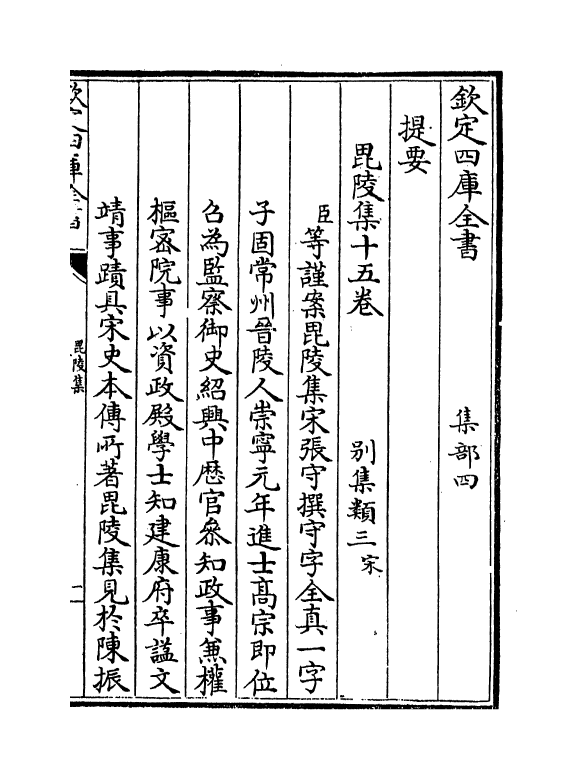 欽定四庫全書　集部四
提要
毘陵集十五卷　別集類三宋
臣等謹案毘陵集宋張守撰守字全真一字
子固常州晉陵人崇寧元年進士髙宗即位
召為監察御史紹興中歴官叅知政事兼權
樞密院事以資政殿學士知建康府卒諡文
靖事蹟具宋史本傳所著毘陵集見於陳振
欽定四庫全書
毘陵集
一